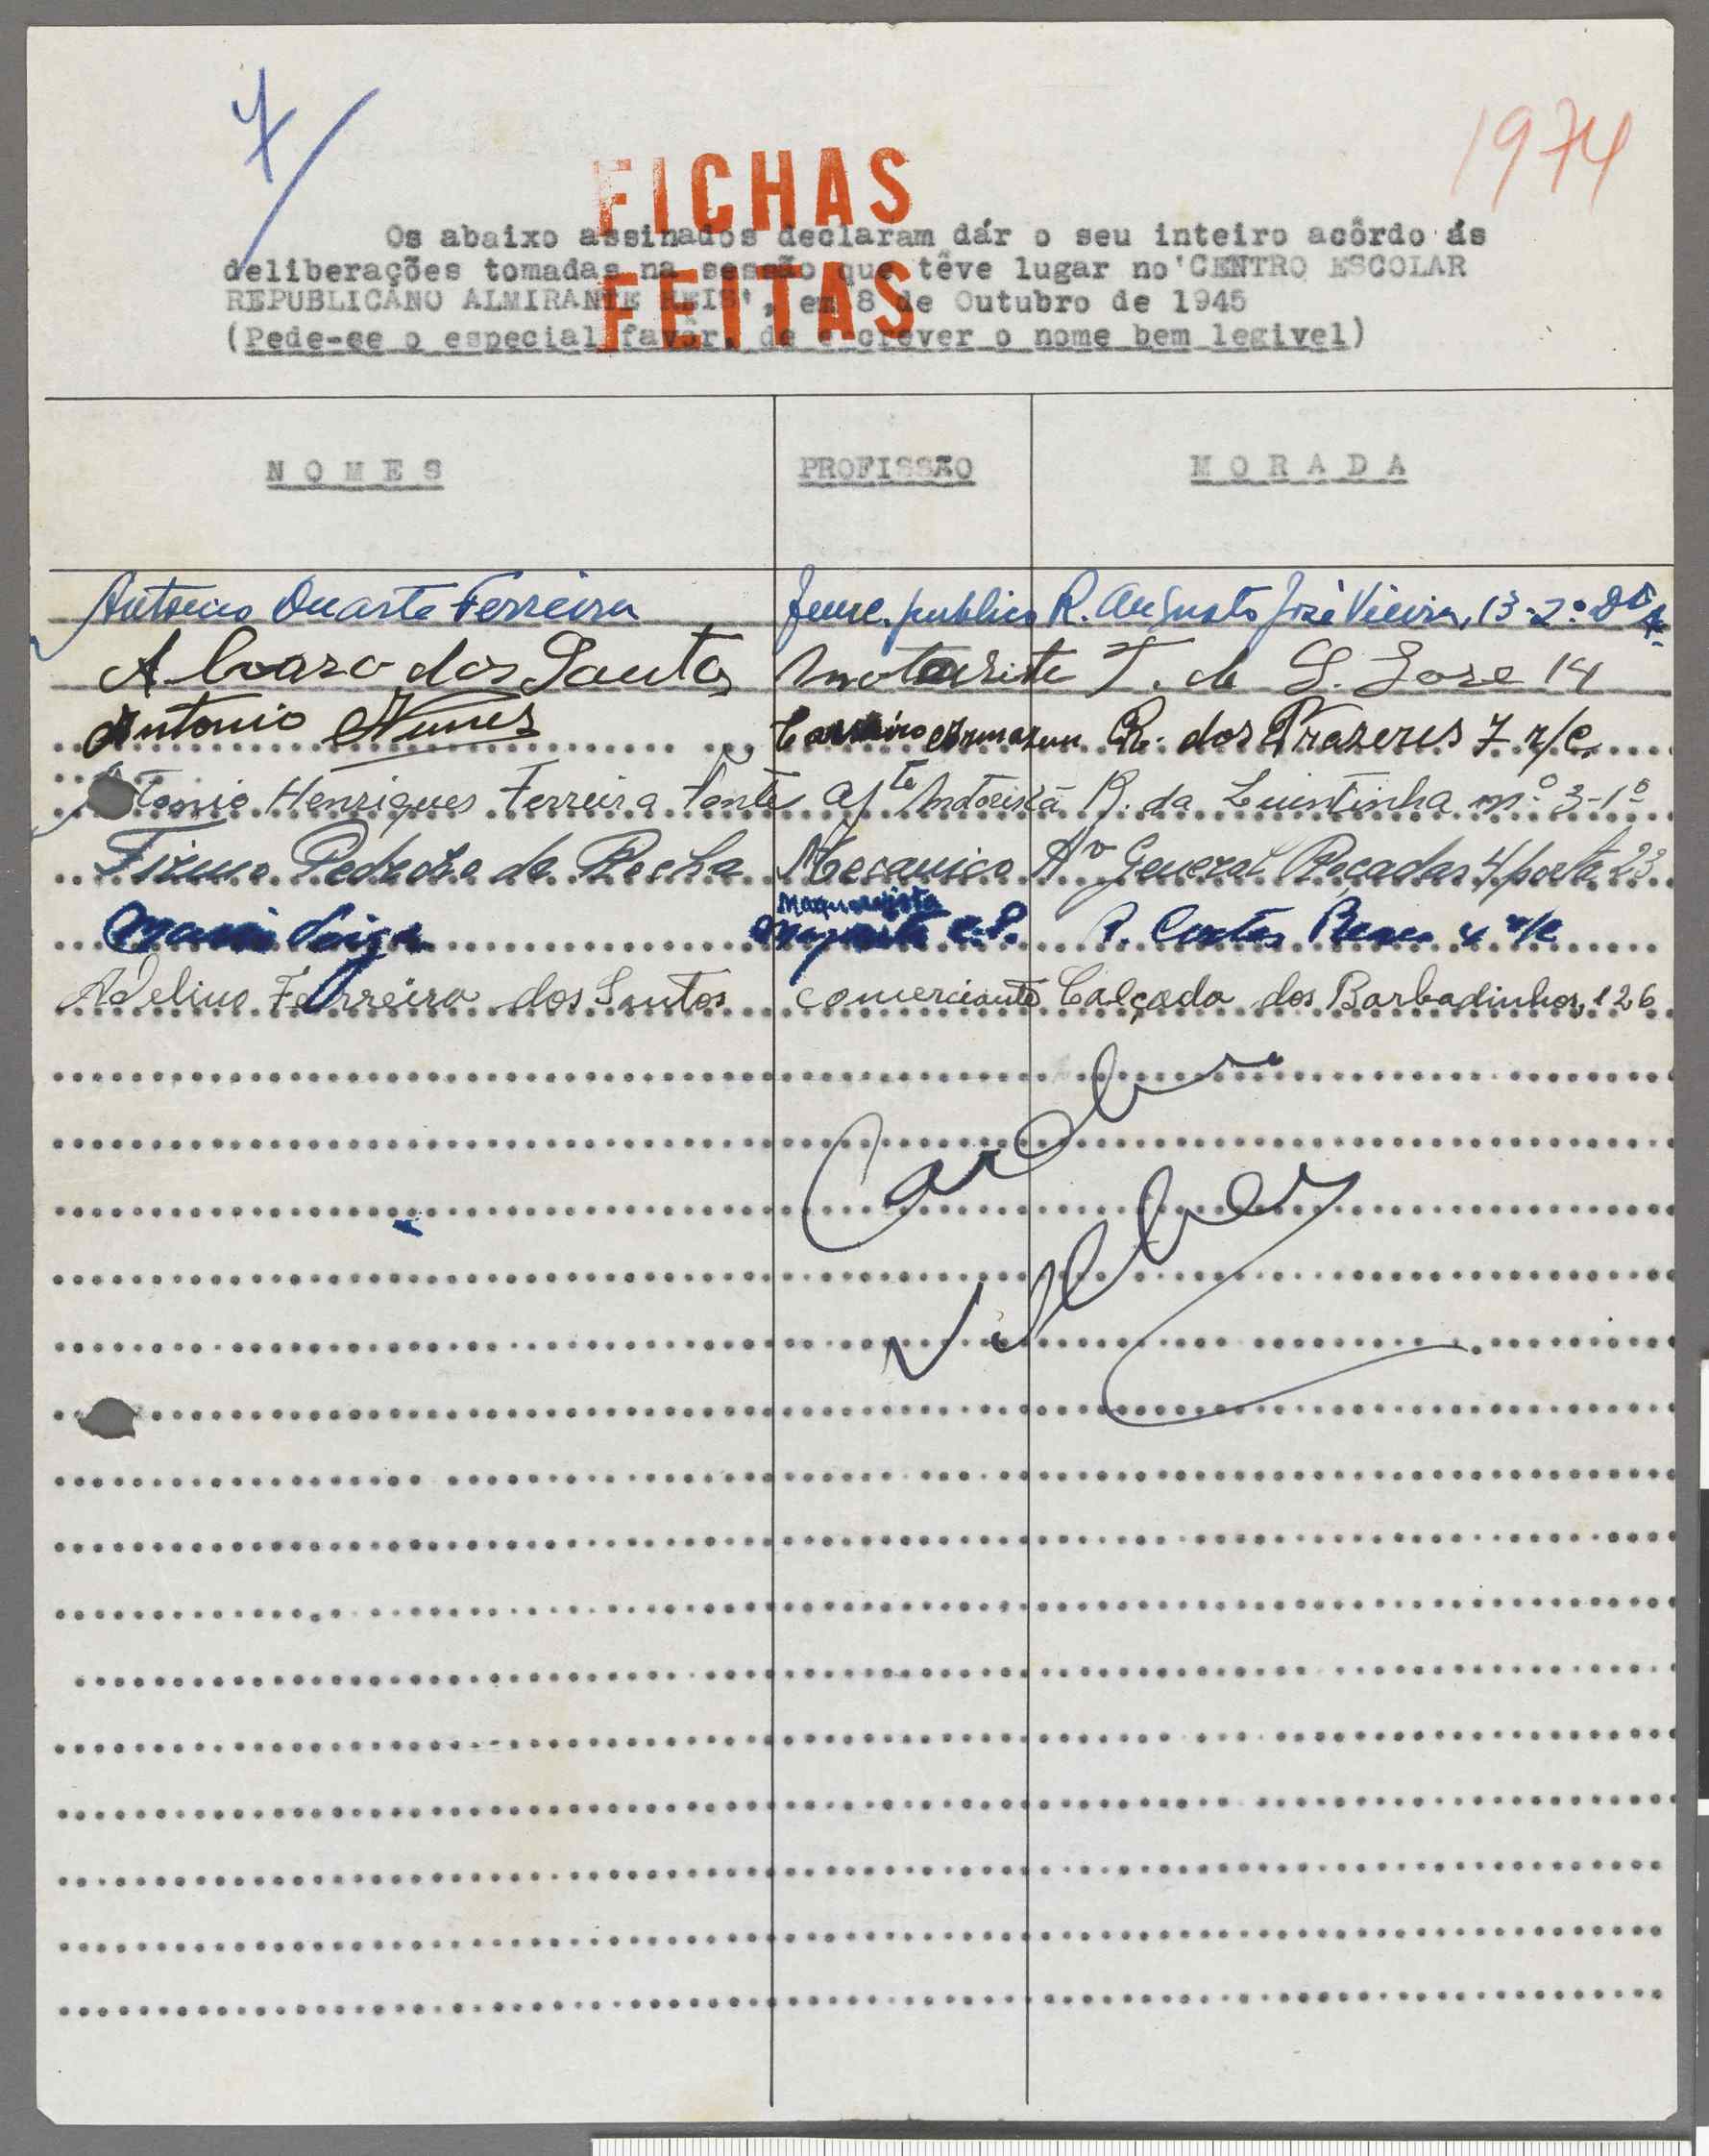 1974
FICHAS
FEITAS
Os abaixo assinados declaram dár o seu inteiro acôrdo ás
deliberações tomadas na sessão que têve lugar no 'CENTRO ESCOLAR
REPUBLICANO ALMIRANTE REIS', em 8 de Outubro de 1945
(Pede-se o especial favôr, de escrever o nome bem legivel)
NOMES PROFISSÃO MORADA
Antonio Duarte Ferreira func. publico R. Augusto José Vieira, 13-2º Dtº
Alvaro dos Santos Motorista T. de S. Jose 14
Antonio Nunes R. dos Prazeres 7 r/c
tonio Henriques Ferreira Fonte Ajte Motorista R. da Quintinha nº 3-1º
Firmo Pedro da Rocha Mecanico Av General Rocadas 4 porta 23
R. r/c
Adelino Ferreira dos Santos comerciante Calçada dos Barbadinhos, 126